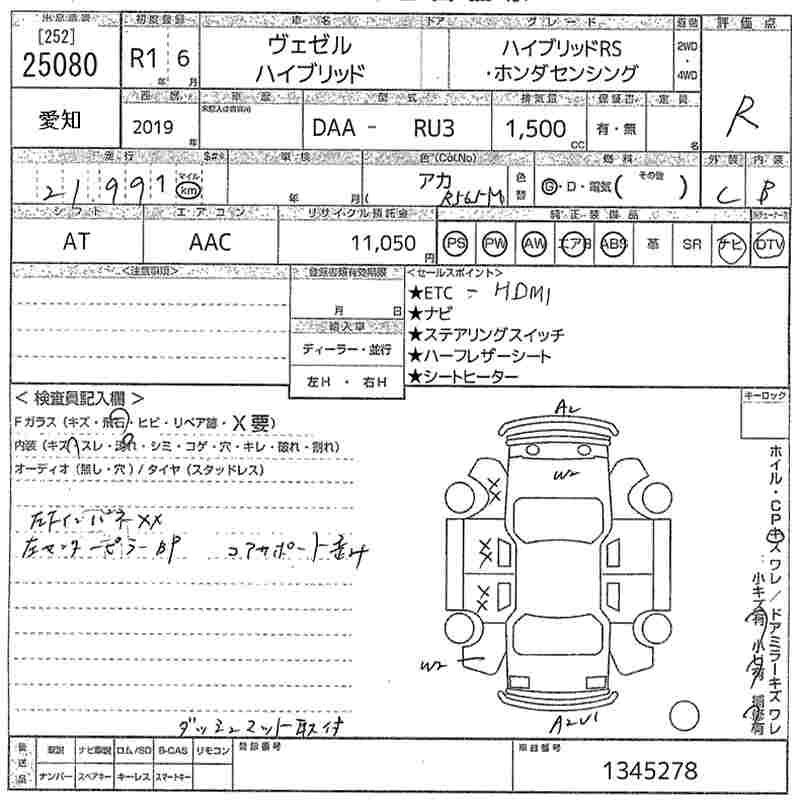 出品番号
[252]
25080
初度登録
R1 年 6 月
車名
ヴェゼル
ハイブリッド
ドア
グレード
ハイブリッドRS
・ホンダセンシング
2WD
・
4WD
評価点
R
愛知
2019 年
車歴
型式
DAA - RU3
排気量
1,500 CC
保証書
有・無
定員
名
走行
21,991 マイル km
車検
年 月
色(Col.No)
アカ
R565M
色替
燃料
G・D・電気( その他 )
外装
C
内装
B
シフト
AT
エアコン
AAC
リサイクル預託金
11,050 円
純正装備品
PS PW AW エアB ABS 革 SR ナビ DTV
<注意事項>
登録書類有効期限
月 日
輸入車
ディーラー・並行
左H ・ 右H
<セールスポイント>
★ETC - HDMI
★ナビ
★ステアリングスイッチ
★ハーフレザーシート
★シートヒーター
<検査員記入欄>
Fガラス(キズ・飛石・ヒビ・リペア跡・X要)
内装(キズ・スレ・汚れ・シミ・コゲ・穴・キレ・破れ・割れ)
オーディオ(無し・穴)/タイヤ(スタッドレス)
左センターピラーBP コアサポート歪み
ダッシュマット取付
キーロック
A2
W2
XX
XX
XX
W2
A2U1
ホイル・CPキズワレ/ドアミラーキズワレ
後送品
取説 ナビ取説 ロム/SD B-CAS リモコン
ナンバー スペアキー キーレス スマートキー
登録番号
車台番号
1345278